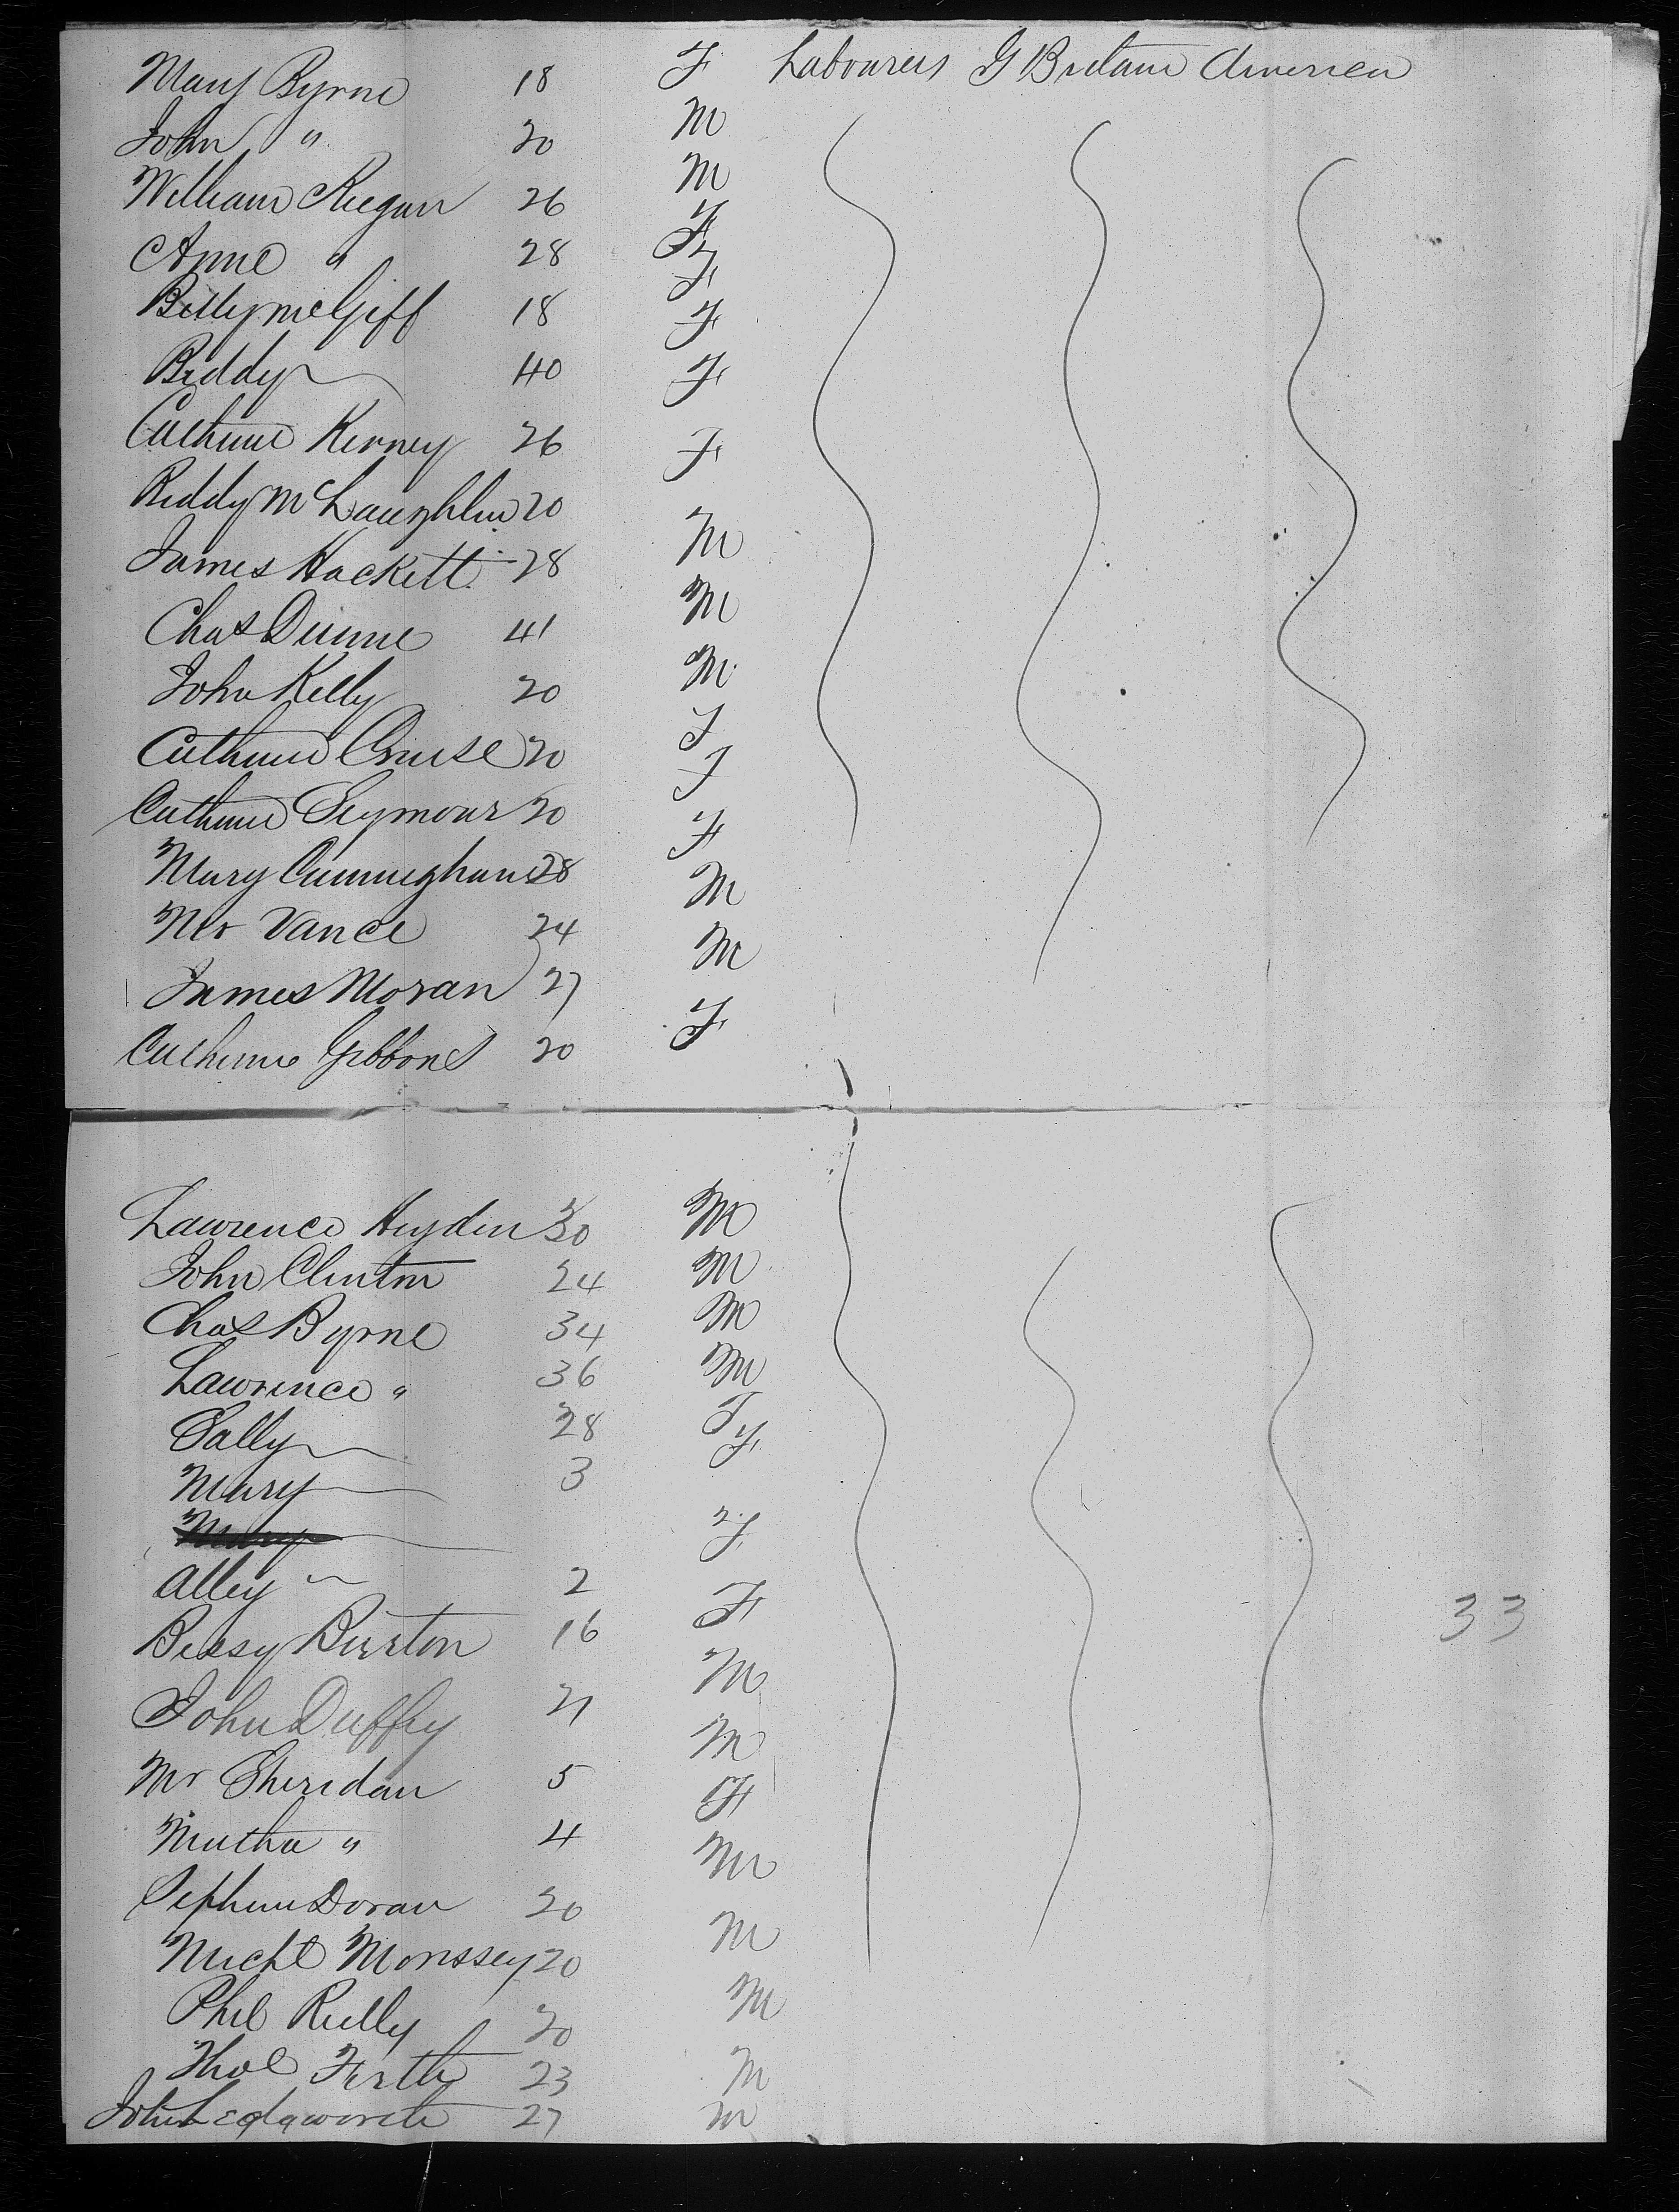 Mary Byrne 18 F Labourers G Britain America
John " 20 M
William Keegan 26 M
Anne " 28 F
Betty McGiff 18 F
Biddy 40 F
Catherine Kerney 26 F
Biddy McLaughlin 20 F
James Hackett 28 M
Chas Dunne 41 M
John Kelly 20 M
Catherine Cruise 20 F
Catherine Seymour 20 F
Mary Cunningham 28 F
Mr Vance 24 M
James Moran 27 M
Catherine Gibbons 20 F
Lawrence Heyden 30 M
John Clinton 24 M
Chas Byrne 34 M
Lawrence " 36 M
Sally 28 F
Mary 3 F
Mary
Alley 2 F
Bessy Burton 16 F
John Duffy 21 M
Mr Sheridan 5 M
" 4 F
Doran 20 M
Michl Morissey 20 M
Phil Reilly 20 M
Firth 23 M
John 27 M
33